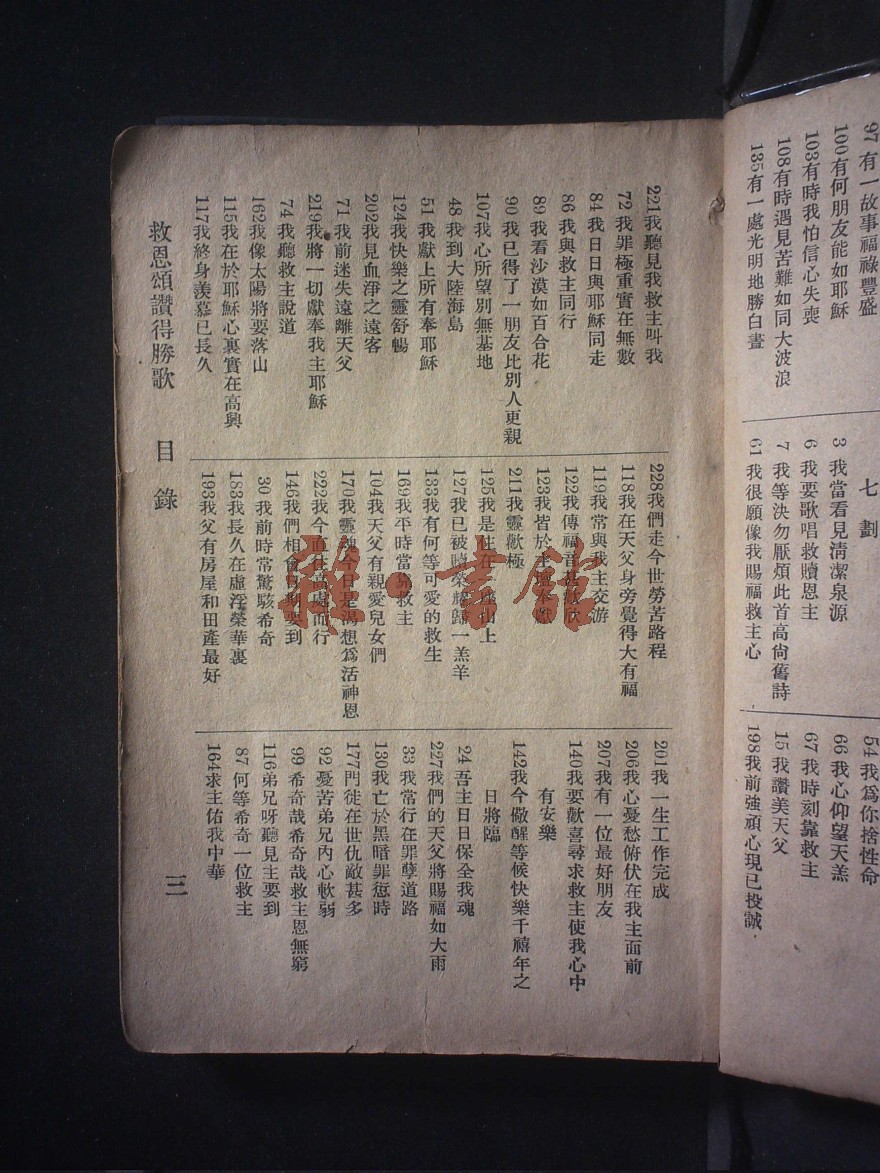 97 有一故事福祿豐盛
100 有何朋友能如耶穌
103 有時我怕信心失喪
108 有時遇見苦難如同大波浪
135 有一處光明地勝白晝
七劃
3 我當看見清潔泉源
6 我要歌唱救贖恩主
7 我等決勿厭煩此首高尙舊詩
61 我很願像我賜福救主心
54 我爲你捨性命
66 我心仰望天羔
67 我時刻靠救主
15 我讚美天父
198 我前強頑心現已投誠
221 我聽見我救主叫我
72 我罪極重實在無數
84 我日日與耶穌同走
86 我與救主同行
89 我看沙漠如百合花
90 我已得了一朋友比別人更親
107 我心所望別無基地
48 我到大陸海島
51 我獻上所有奉耶穌
124 我快樂之靈舒暢
202 我見血淨之遠客
71 我前迷失遠離天父
219 我將一切獻奉我主耶穌
74 我聽救主說道
162 我像太陽將要落山
115 我在於耶穌心裏實在高興
117 我終身羨慕已長久
228 我們走今世勞苦路程
118 我在天父身旁覺得大有福
119 我常與我主交游
122 我傳福音
123 我皆於
211 我靈歡極
125 我是住在 山上
127 我已被贖榮耀歸一羔羊
133 我有何等可愛的救生
169 我平時當靠救主
104 我天父有親愛兒女們
170 我靈魂今日是渴想爲活神恩
222 我今直往高處而行
146 我們相會 要到
30 我前時常驚駭希奇
183 我長久在虛浮榮華裏
193 我父有房屋和田產最好
201 我一生工作完成
206 我心憂愁俯伏在我主面前
207 我有一位最好朋友
140 我要歡喜尋求救主使我心中
有安樂
142 我今儆醒等候快樂千禧年之
日將臨
24 吾主日日保全我魂
227 我們的天父將賜福如大雨
33 我常行在罪孽道路
130 我亡於黑暗罪愆時
177 門徒在世仇敵甚多
92 憂苦弟兄內心軟弱
99 希奇哉希奇哉救主恩無窮
116 弟兄呀聽見主要到
87 何等希奇一位救主
164 求主佑我中華
救恩頌讚得勝歌 目錄 三